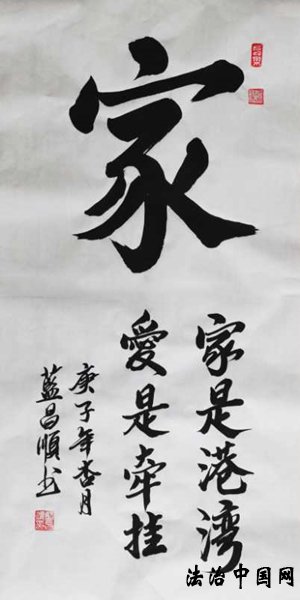 家
家是港湾
愛是牽挂
庚子年月
藍昌順书
法治中国网